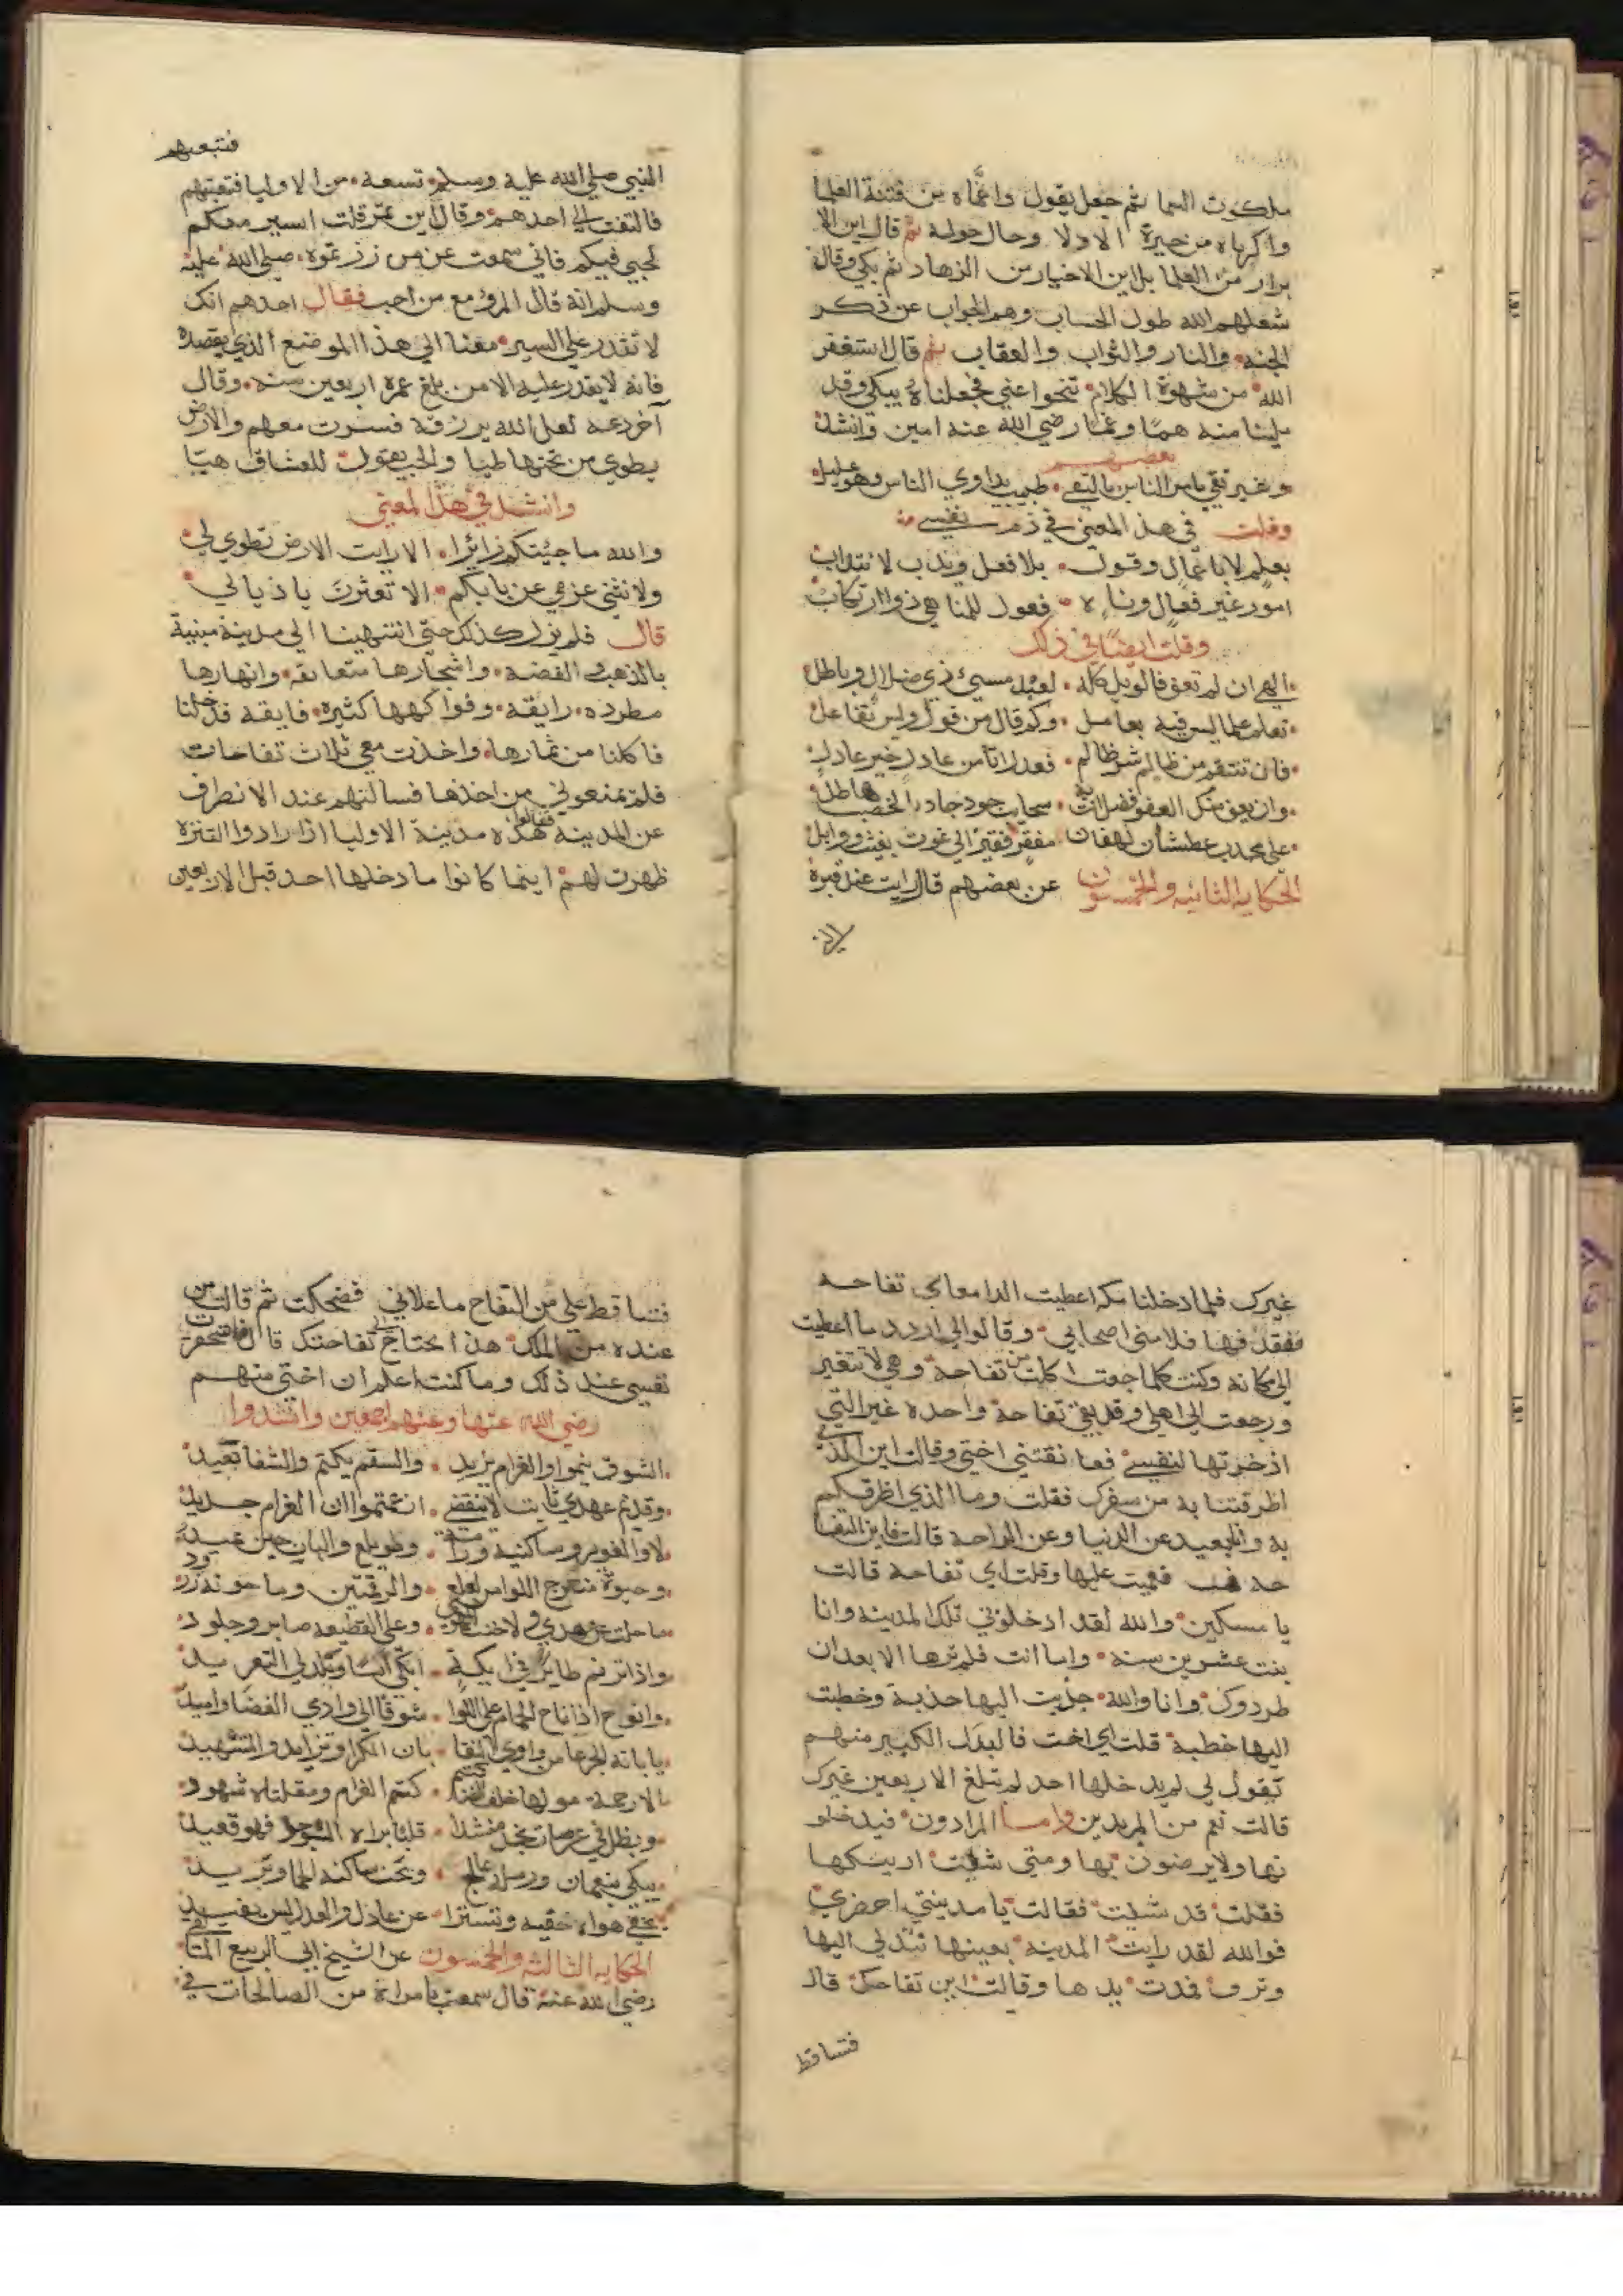 ملكوت السما ثم جعل يقول واغماه من فتنة العلما
واكرباه من حيرة الادلا وجال جولة ثم قال اين الا
برار من العلما بل اين الاخيار من الزهاد ثم بكي وقال
شغلهم الله طول الحساب وهم الجواب عن ذكر
الجنه والنار والثواب والعقاب ثم قال استغفر
الله من شهوة الكلام تنحوا عني فجعلناه يبكي وقد
ملينا منه هما وغما رضي الله عنه امين وانشد
بعضهم
وغير تقي يامر الناس بالتقي طبيب يداوي الناس وهو عليل
وقلت في هذا المعني في ذم نفسي
بعلم لا باعمال وقول بلا فعل وندب لا نتداب
امور غير فعال وناه فعول للمناهي ذو ارتكاب
وقلت ايضا في ذلك
الهي ان لم تعف فالويل كله لعبد مسيئ ذي ضلال وباطل
تعلم علما ليس فيه بعامل وكم قال من قول وليس بفاعل
فان تنتقم من ظالم شر ظالم فعدل اتا من عادل خير عادل
وان يعف منك العفو فضلا سحايب جود جاد بالخصب هاطل
علي مجدب عطشان لهفان مفقر فقير الي غوث بغيث ووابل
الحكاية الثانية والخمسون عن بعضهم قال رايت عند قبره
فتبعتهم
النبي صلي الله عليه وسلم تسعة من الاوليا فتبعتهم
فالتفت الي احدهم وقال اين تمر قلت اسير معكم
لحبي فيكم فاني سمعت عن من زرتموه صلي الله عليه
وسلم انه قال المرؤ مع من احب فقال احدهم انك
لا تقدر علي السير معنا الي هذا الموضع الذي نقصده
فانه لا يقدر عليه الا من بلغ عمره اربعين سنه وقال
آخر دعه لعل الله يرزقه فسرت معهم والارض
يطوي من تحتها طيا والحب يقول للعشاق هيا
وانشد في هذا المعني
والله ما جيتكم زائرا الا رايت الارض تطوي لي
ولا نثني عزمي عن بابكم الا تعثرت باذيالي
قال فلم نزل كذلك حتي انتهينا الي مدينة مبنية
بالذهب الفضة واشجارها متعانقه وانهارها
مطرده رايقه وفواكهها كثيرة فايقه فدخلنا
فاكلنا من ثمارها واخذت معي ثلاث تفاحات
فلم يمنعوني من اخذها فسالتهم عند الانصراف
عن المدينه فقالوا هذه مدينة الاوليا اذا ارادوا التنزه
ظهرت لهم اينما كانوا ما دخلها احد قبل الاربعين
غيرك فلما دخلنا مكه اعطيت الدامغاني تفاحه
ففقد فها فلامني اصحابي وقالوا لي اردد ما اعطيت
الي مكانه وكنت كلما جعت اكلت من تفاحة وهي لا تتغير
ورجعت الي اهلي وقد بقي تفاحة واحده غير التي
اذخرتها لنفسي فعانقتني اختي وقالت اين الذي
اطرفتنا به من سفرك فقلت وما الذي اطرفكم
به وانا بعيد عن الدنيا وعن الراحة قالت فاين التفا
حه فعميت عليها وقلت اي تفاحة قالت
يا مسكين والله لقد ادخلوني تلك المدينه وانا
بنت عشرين سنه واما انت فلم ترها الا بعد ان
طردوك وانا والله جذبت اليها جذبة وخطبت
اليها خطبة قلت اي اخت فالبدل الكبير منهم
يقول لي لم يدخلها احد لم يبلغ الاربعين غيرك
قالت نعم من المريدين واما المرادون فيدخلو
نها ولا يرضون بها ومتي شئت اريتكها
فقلت قد شئت فقالت يا مدينتي احضري
فوالله لقد رايت المدينه بعينها تتدلي اليها
وترف فمدت يدها وقالت اين تفاحك قال
فتساقط
فتساقط علي من التفاح ما علاني فضحكت ثم قالت من
عنده من الملك هذا يحتاج الي تفاحتك قال فاستحقرت
نفسي عند ذلك وما كنت اعلم ان اختي منهم
رضي الله عنها وعنهم اجمعين وانشدوا
الشوق ينموا والغرام يزيد والسقم يكتم والشفا بعيد
وقديم عهدي ثابت لا ينقضي ان غتموا ان الغرام جديد
لا والغوير وساكنيه ورامة وطويلع والبان حين
منعرج اللوا من لعلع والرقمتين وما حوته زرود
ما حلت عن عهدي ولا خنت وعلي القطيعه صابر وجلود
واذا ترنم طاير في ايكة ابكي اسا
وانوح اذا ناح الحمام علي اللوا شوقا الي وادي الغضا واميد
يا بانة الجرعا من وادي النقا
الا رحمة كتم الغرام ومقلتاه شهود
ويظل في عرصات نجد منشدا فهو قعيد
يبكي بنعمان ورملة عالج
يخفي هواه خفيه وتسترا عن عاذل والعذل ليس يفيد
الحكاية الثالثه والخمسون عن الشيخ ابي الربيع المالقي
رضي الله عنه قال سمعت بامراة من الصالحات في